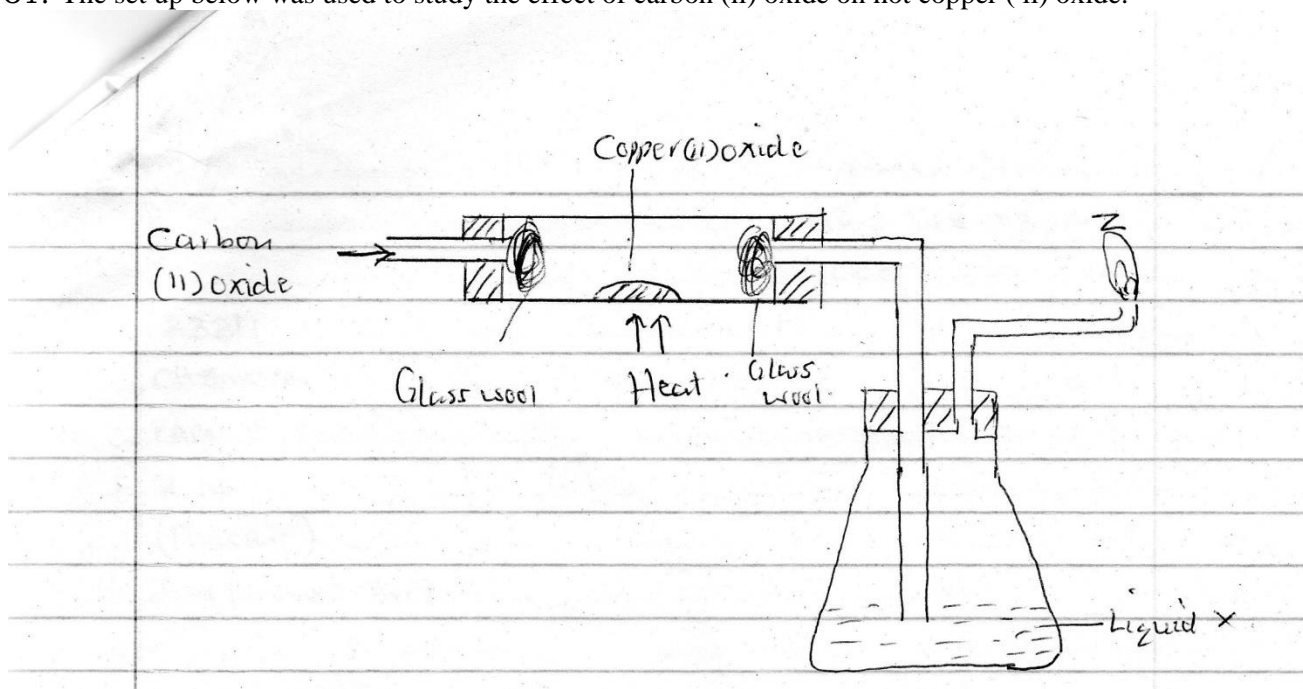 The set up below was used to study the effect of carbon (ii) oxide on hot copper ( ii) oxide.
Copper(II)oxide
Z
Carbon
(II) oxide
Glass wool
Heat
Glass
wool
Liquid X